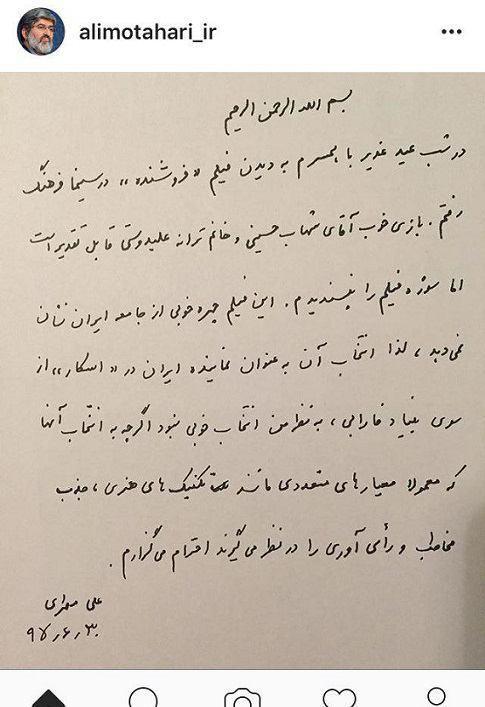 alimotahari_ir
بسم الله الرحمن الرحیم
در شب عید غدیر با همسرم به دیدن فیلم «فروشنده» در سینما فرهنگ
رفتم. بازی خوب آقای شهاب حسینی و خانم ترانه علیدوستی قابل تقدیر است
اما سوژه فیلم را نپسندیدم. این فیلم چهره خوبی از جامعه ایران نشان
نمی‌دهد، لذا انتخاب آن به عنوان نماینده ایران در «اسکار» از
سوی بنیاد فارابی، به نظر من انتخاب خوبی نبود اگرچه به انتخاب آنها
که معمولا معیارهای متعددی مانند تکنیک‌های هنری، جذب
مخاطب و رأی آوری را در نظر می‌گیرند احترام می‌گزارم.
علی مطهری